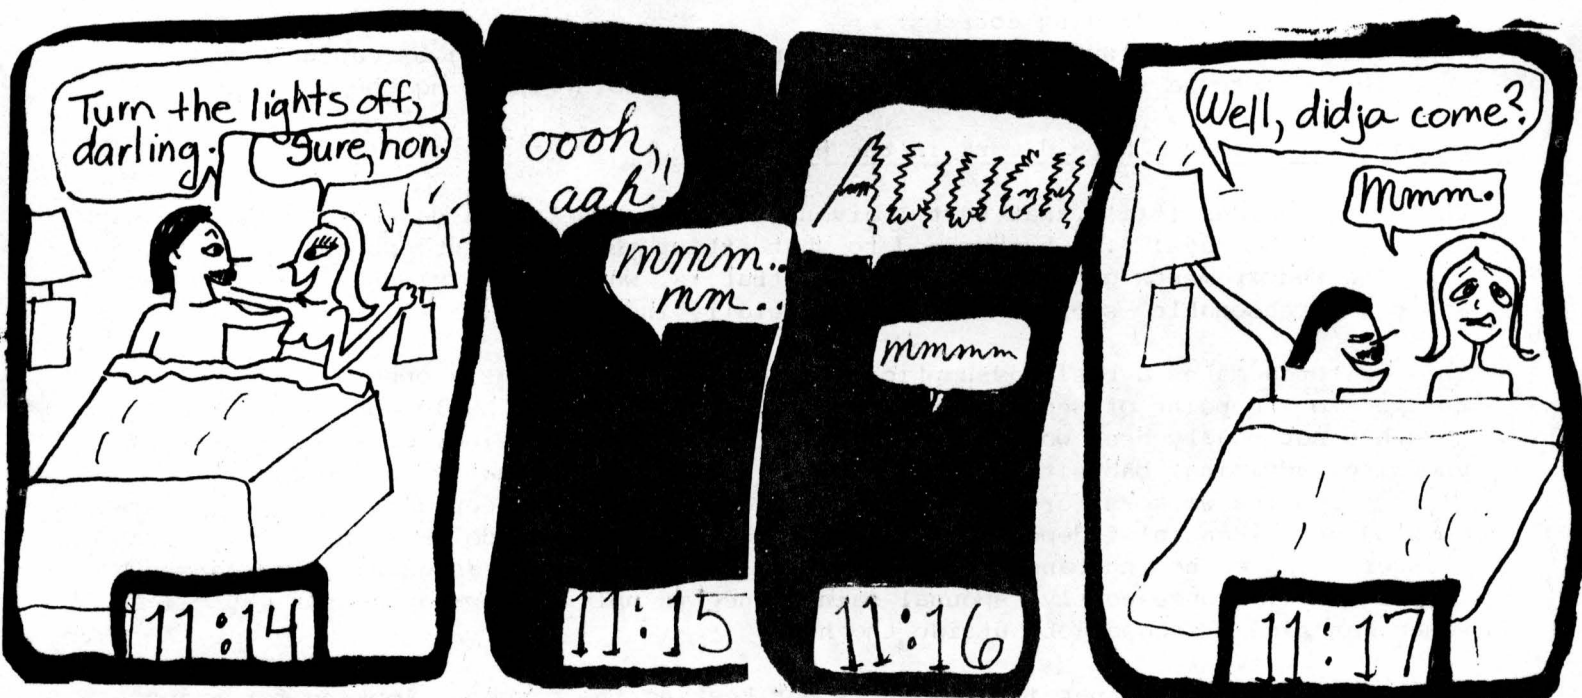 Turn the lights off,
darling.
Sure, hon.
11:14
oooh,
aah!
mmm..
mm..
11:15
AUUUGH
mmmm
11:16
Well, didja come?
Mmm.
11:17